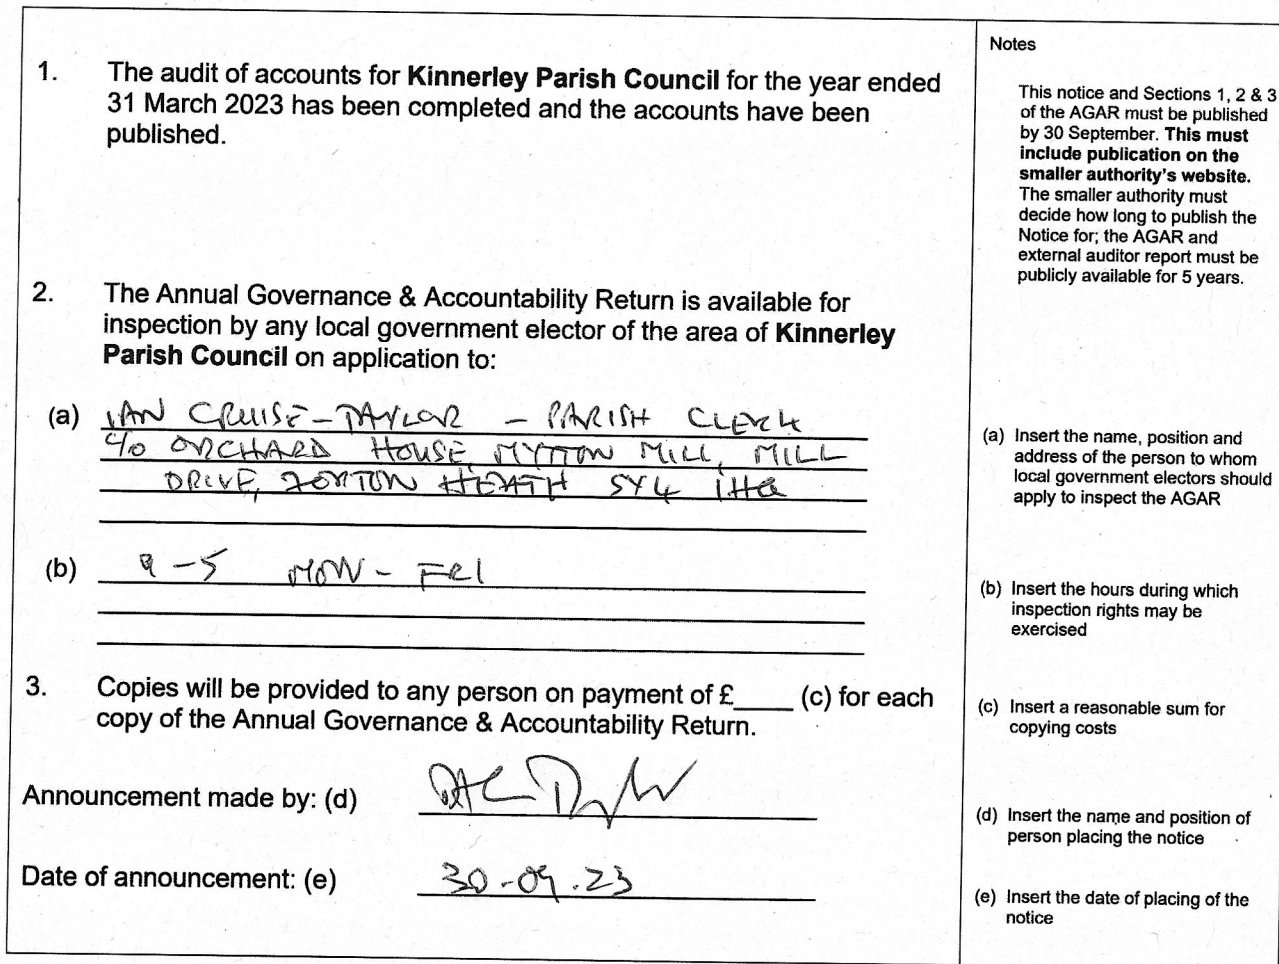 1. The audit of accounts for Kinnerley Parish Council for the year ended
31 March 2023 has been completed and the accounts have been
published.
2. The Annual Governance & Accountability Return is available for
inspection by any local government elector of the area of Kinnerley
Parish Council on application to:
(a) IAN CRUISE-TAYLOR - PARISH CLERK
c/o ORCHARD HOUSE, MYTTON MILL, MILL
DRIVE, FORTON HEATH SY4 1HA
(b) 9-5 MON - FRI
3. Copies will be provided to any person on payment of £____ (c) for each
copy of the Annual Governance & Accountability Return.
Announcement made by: (d)
Date of announcement: (e) 30.09.23
Notes
This notice and Sections 1, 2 & 3
of the AGAR must be published
by 30 September. This must
include publication on the
smaller authority's website.
The smaller authority must
decide how long to publish the
Notice for; the AGAR and
external auditor report must be
publicly available for 5 years.
(a) Insert the name, position and
address of the person to whom
local government electors should
apply to inspect the AGAR
(b) Insert the hours during which
inspection rights may be
exercised
(c) Insert a reasonable sum for
copying costs
(d) Insert the name and position of
person placing the notice
(e) Insert the date of placing of the
notice